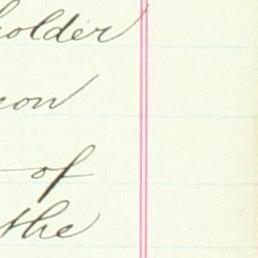 holder
con
of
the